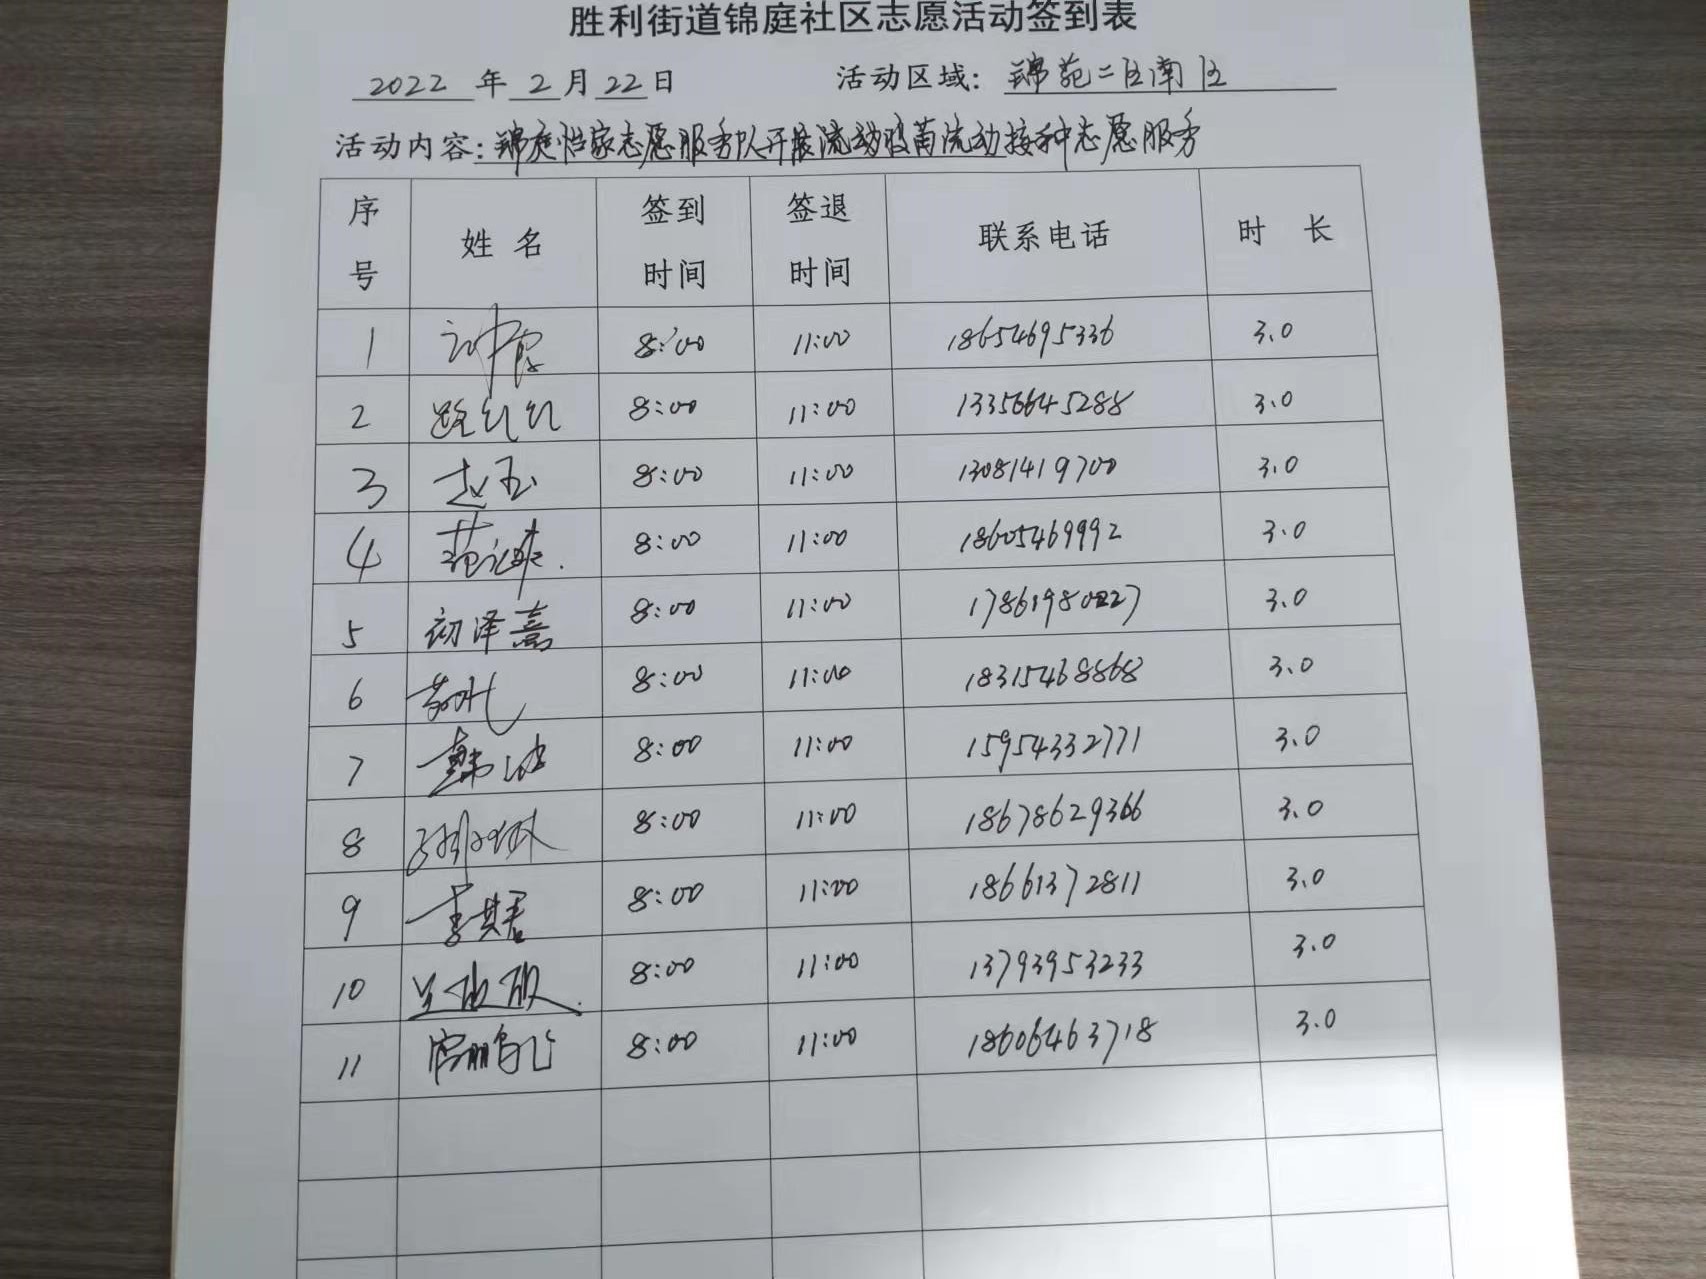 胜利街道锦庭社区志愿活动签到表
2022 年 2 月 22 日 活动区域: 锦苑二区南区
活动内容: 锦庭怡家志愿服务队开展流动疫苗流动接种志愿服务
序号 姓名 签到时间 签退时间 联系电话 时长
1 8:00 11:00 18654695336 3.0
2 路红红 8:00 11:00 13356645288 3.0
3 赵玉 8:00 11:00 13081419700 3.0
4 8:00 11:00 18605469992 3.0
5 初泽熹 8:00 11:00 17861980227 3.0
6 8:00 11:00 18315468868 3.0
7 韩波 8:00 11:00 15954332771 3.0
8 8:00 11:00 18678629366 3.0
9 李其君 8:00 11:00 18661372811 3.0
10 8:00 11:00 13793953233 3.0
11 8:00 11:00 18606463718 3.0